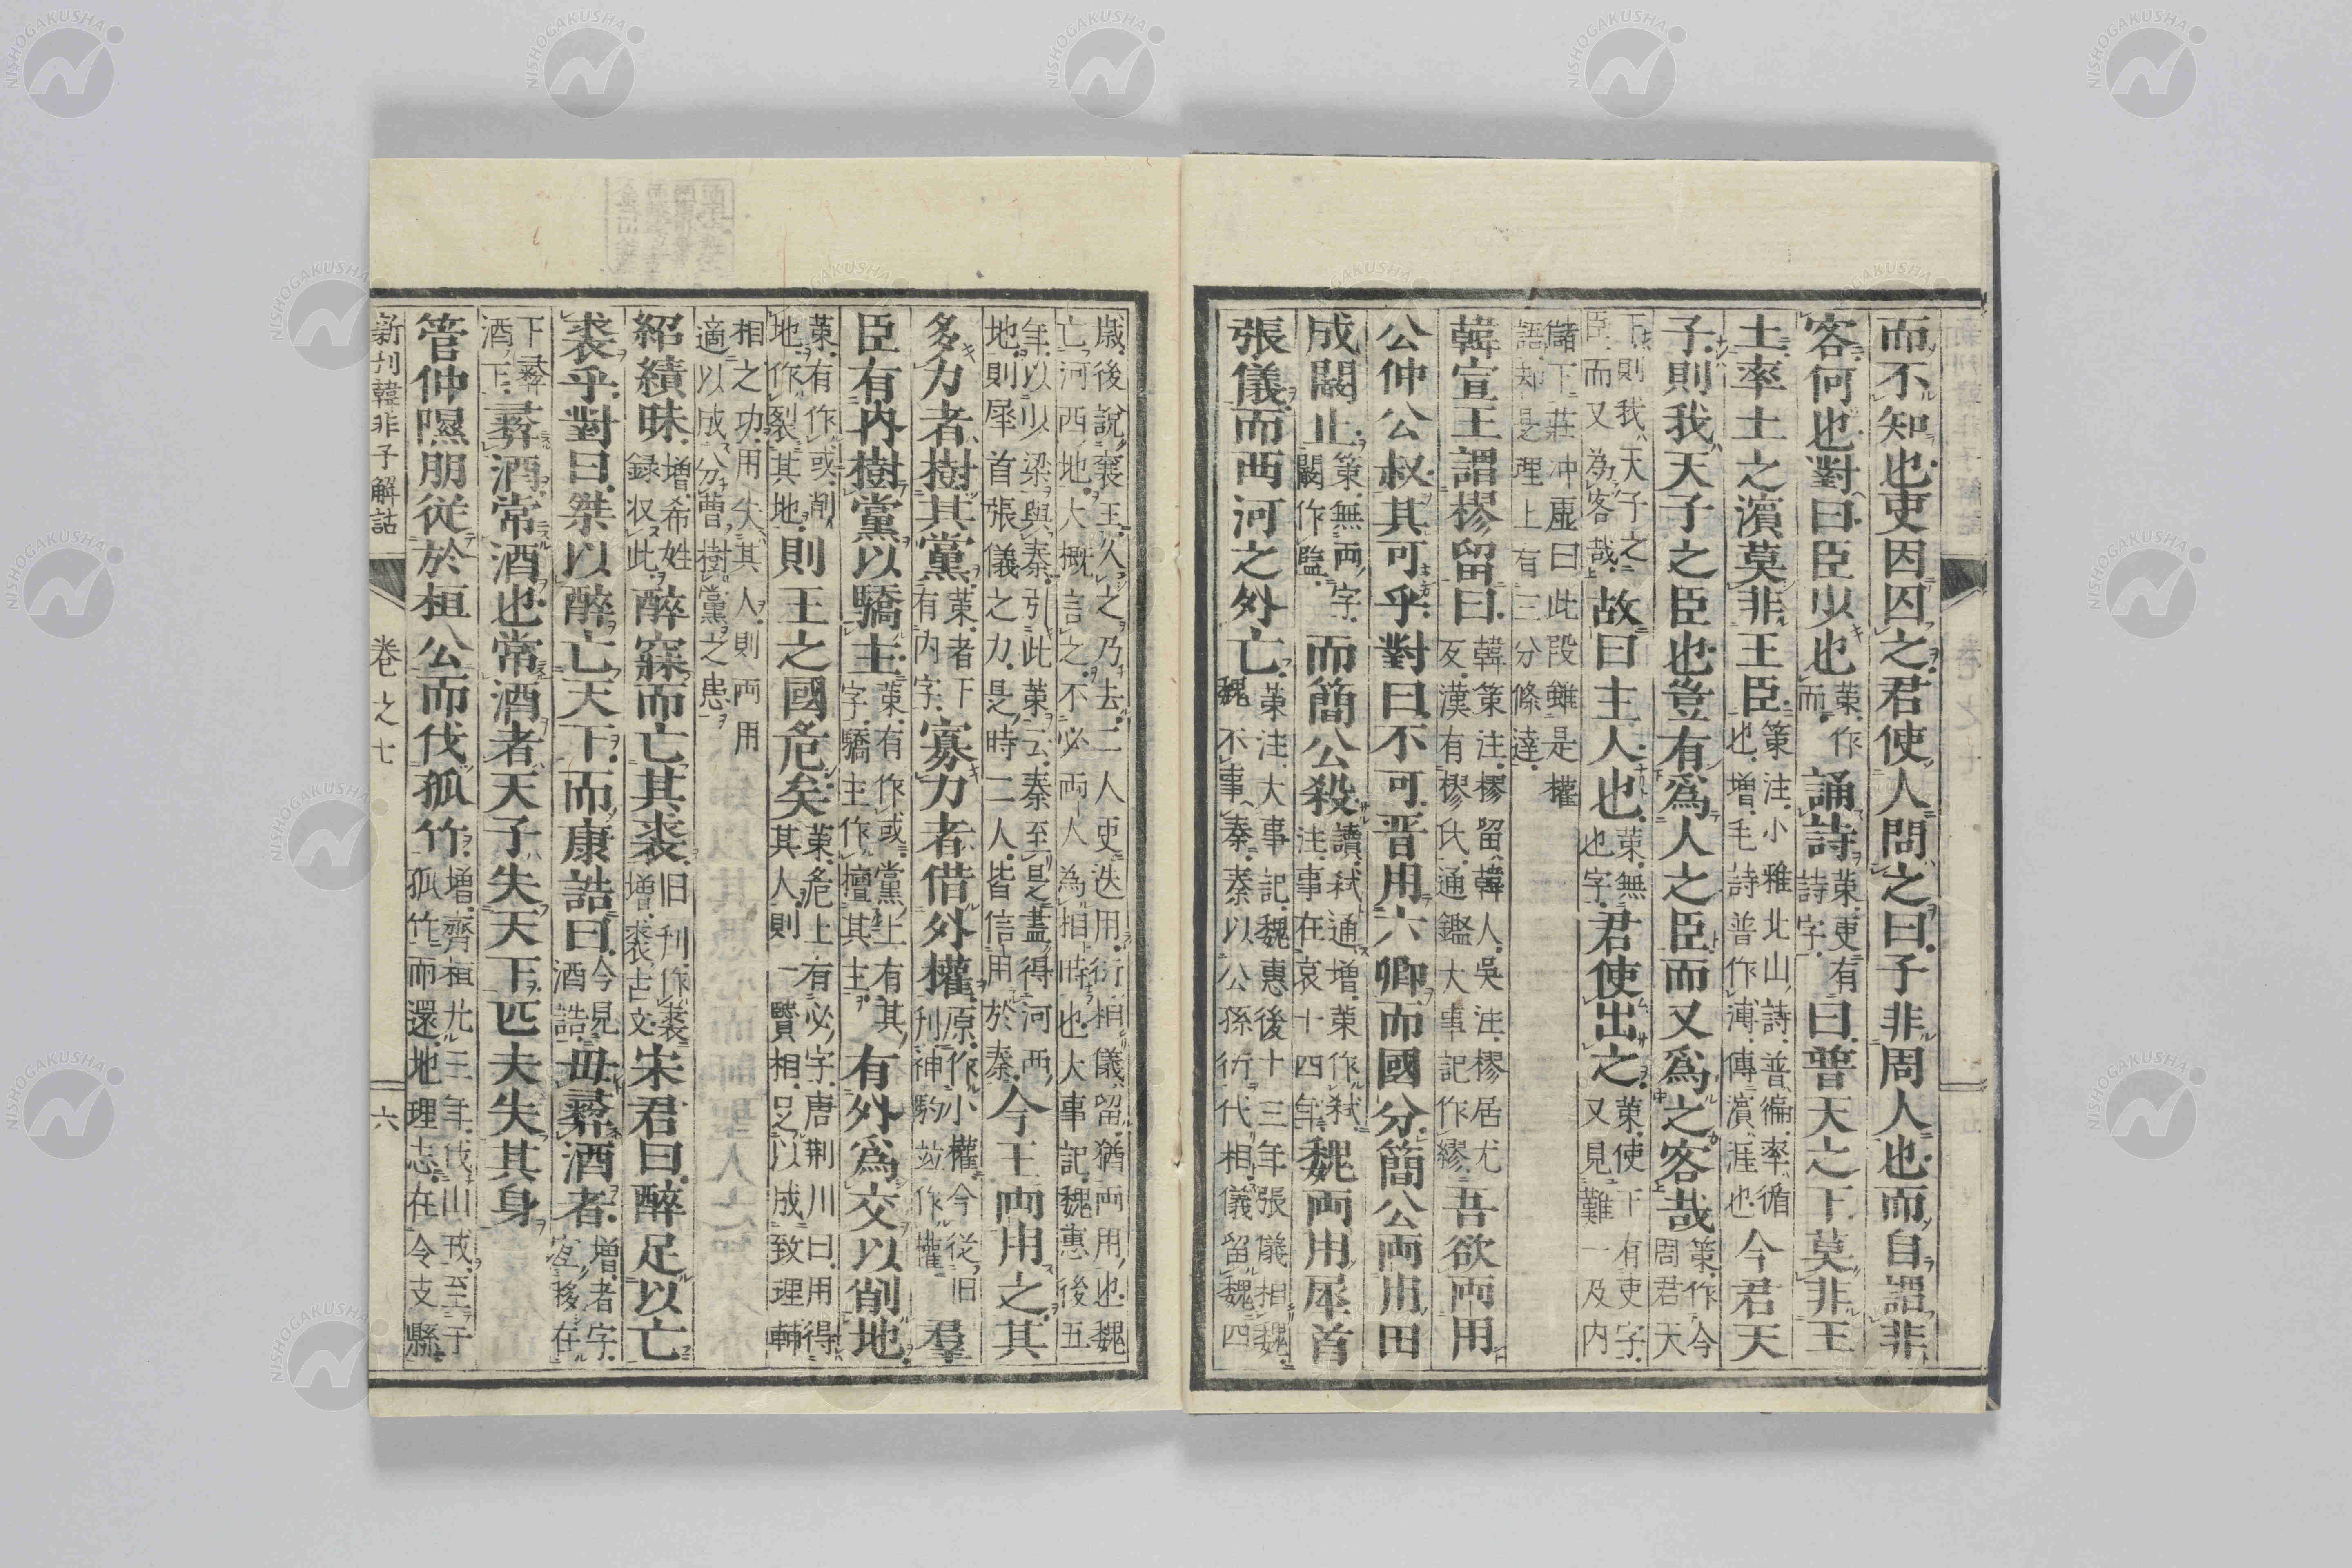 而不知也吏因囚之君使人問之曰子非周人也而自謂非
客何也對曰臣少也
策作
而
誦詩
策更有
詩字
曰普天之下莫非王
土率土之濱莫非王臣
策注小雅北山詩普徧率循
也增毛詩普作溥傳濱涯也
今君天
子則我天子之臣也豈有爲人之臣而又爲之客哉
策作今
周君天
下則我天子之
臣而又為客哉
故曰主人也
策無
也字
君使出之
策使下有吏字
又見難一及内
儲下莊冲虛曰此段雖是權
語却是理上有三分條達
韓宣王謂樛留曰
韓策注樛留韓人吳注樛居尤
反漢有樛氏通鑑大事記作繆
吾欲両用
公仲公叔其可乎對曰不可晋用六卿而國分簡公両用田
成闞止
策無両字
闞作監
而簡公殺
讀弒通増策作弒
注事在哀十四年
魏両用犀首
張儀而西河之外亡
策注大事記魏惠後十三年張儀相魏
魏不事秦秦以公孫衍代相儀留魏四
歳後說襄王久之乃去二人更迭用衍相儀留猶両用也魏
亡河西地大概言之不必両人為相時也大事記魏惠後五
年以少梁與秦引此策云秦至是盡得河西
地則犀首張儀之力是時二人皆信用於秦
今王両用之其
多力者樹其黨
策者下
有内字
寡力者借外權
原作小權今從旧
刋神駒竝作權
羣
臣有内樹黨以驕主
策有作或黨上有其
字驕主作擅其主
有外爲交以削地
策有作或削
地作裂其地
則王之國危矣
策危上有必字唐荆川曰用得
其人則一賢相足以成致理輔
相之功用失其人則両用
適以成分曹樹黨之患
紹績昧
増希姓
録収此
醉寐而亡其裘
旧刋作裘
増裘古文
宋君曰醉足以亡
裘乎對曰桀以醉亡天下而康誥曰
今見
酒誥
毋彛酒者
増者字
宜移在
下彛
酒下
彛酒常酒也常酒者天子失天下匹夫失其身
管仲隰朋從於桓公而伐狐竹
増齊桓九三年伐山戎至于
狐竹而還地理志在令支縣
新刋韓非子解詁
卷之七
六